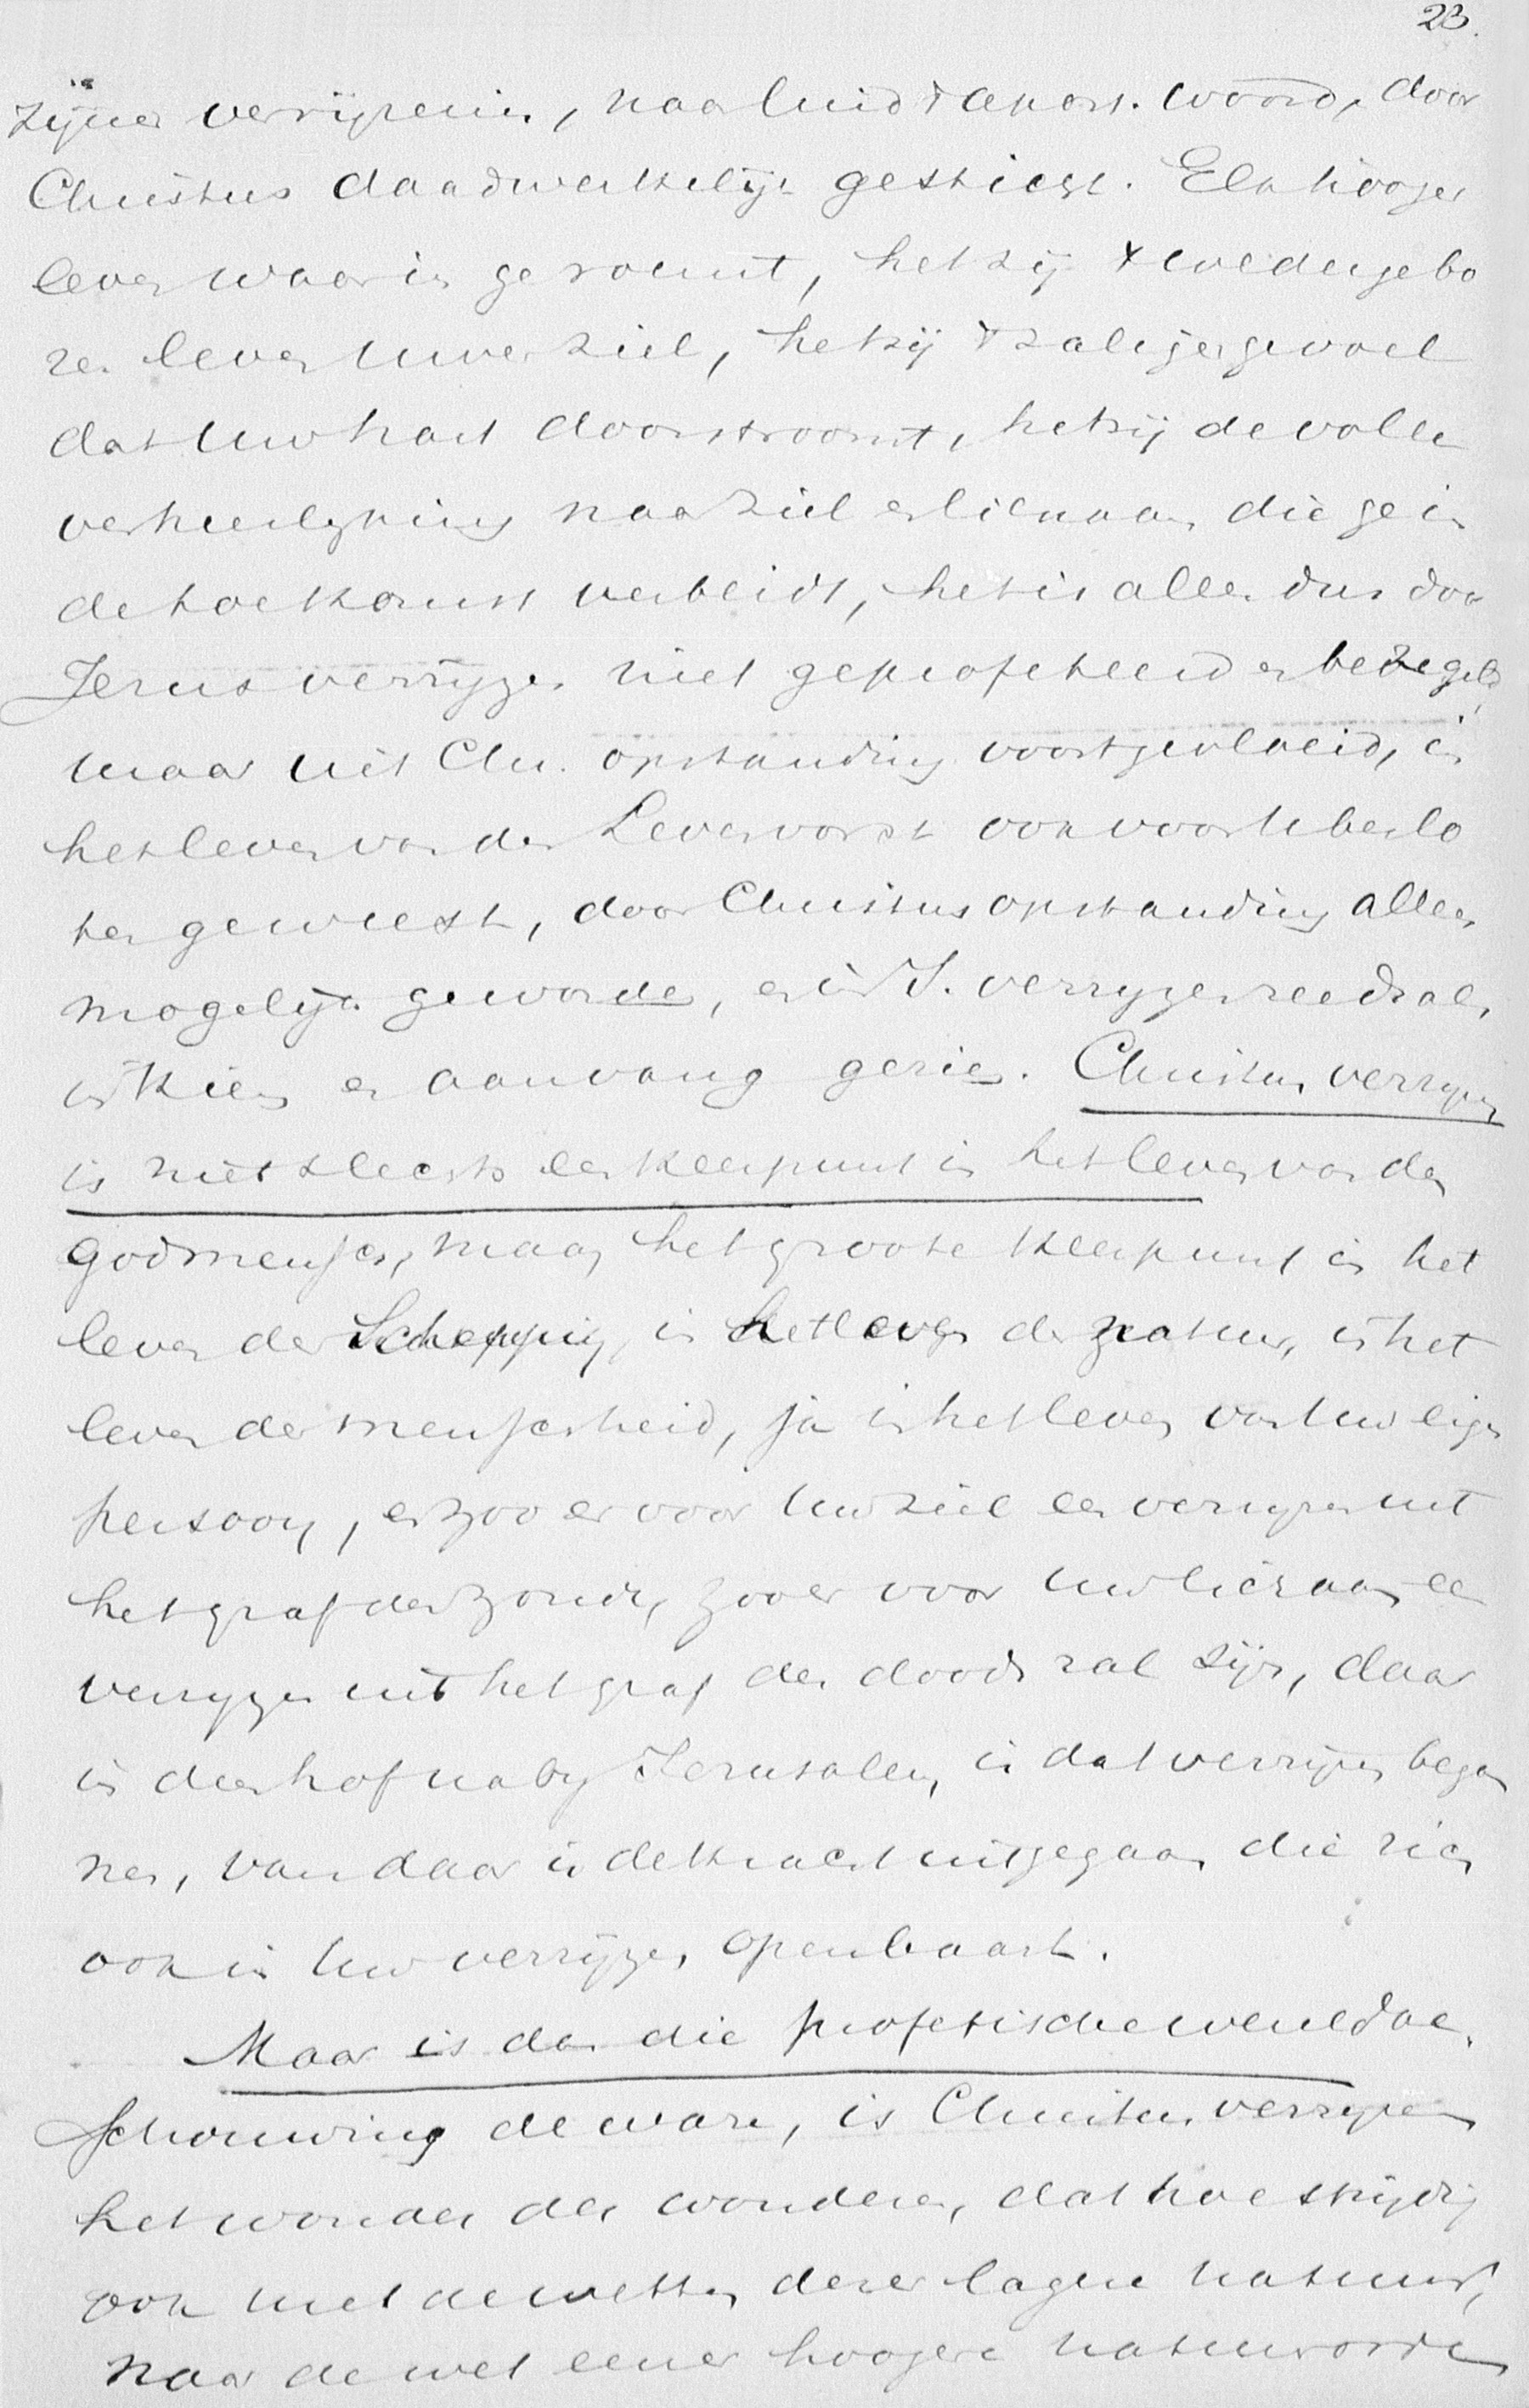 23.
zijner verrijzenis, naar luid 't apost. woord, door
Christus daadwerkelijk gesticht. Elk hooger
leven waarin ge roemt, het zij 't wedergebo
ren leven uwer ziel, hetzij 't zaliger gevoel
dat uw hart doorstroomt, hetzij de volle
verheerlijking naar ziel en lichaam die ge in
de toekomst verbeidt, het is alles dus door
Jezus verrijzen niet geprofeteerd en bezegeld,
maar uit Chr. opstanding voortgevloeid, in
het leven van den Levensvorst ook voor u beslo
ten geweest, door Christus opstanding alleen
mogelijk geworden, en in J. verrijzen reeds als
in kiem en aanvang gezien. Christus verrijzen
is niet slechts een keerpunt in het leven van den
Godmensch, maar het groote keerpunt in het
leven der Schepping, in het leven der natuur, in het
leven der menschheid, ja in het leven van uw eigen
persoon, en zoo er voor uw ziel een verrijzen uit
het graf der zonde, zoo er voor uw lichaam een
verrijzen uit het graf des doods zal zijn, daar
in dien hof naby Jerusalem, is dat verrijzen begon
nen, van daar is de kracht uitgegaan die zich
ook in uw verrijzen openbaart.
Maar is dan die profetische wereldaan
schouwing de ware, is Christus verrijzen
het wonder der wonderen, dat hoe strijdig
ook met de wetten dezer lagere natuur,
naar de wet eener hoogere natuurorde